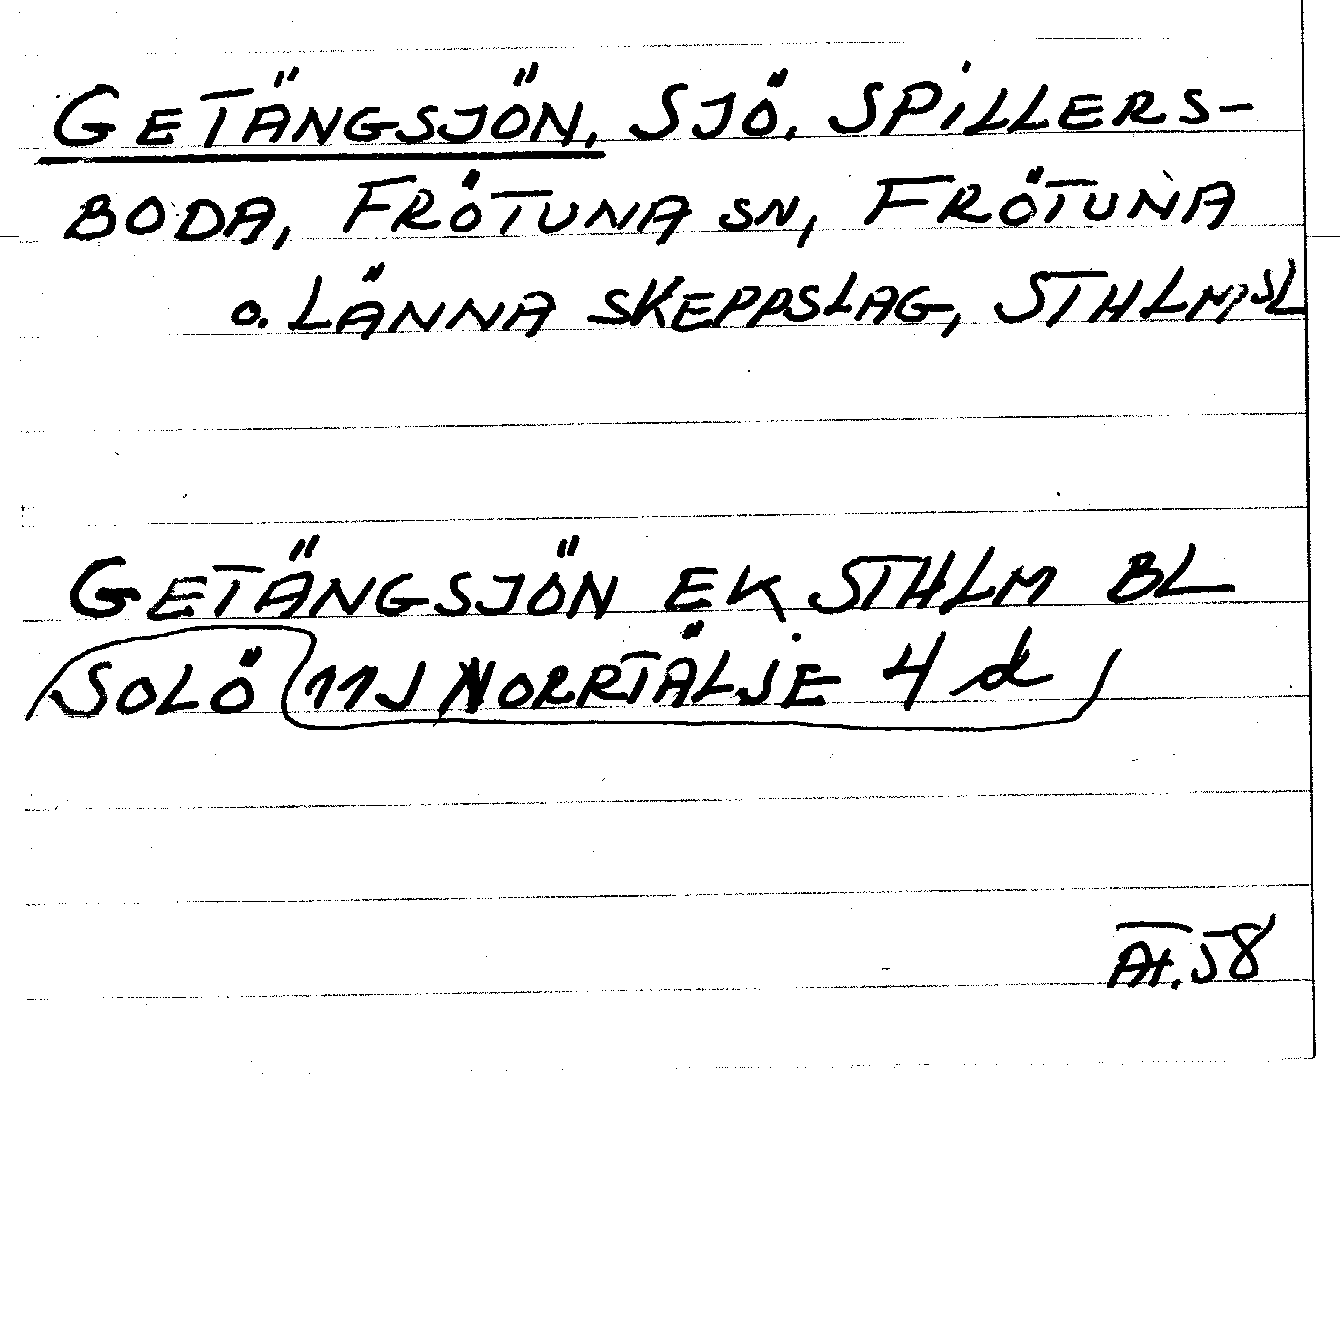 GETÄNGSJÖN, SJÖ, SPILLERS-
BODA, FRÖTUNA SN, FRÖTUNA
o. LÄNNA SKEPPSLAG, STHLMSL
GETÄNGSJÖN EK STHLM BL
SOLÖ 11J NORRTÄLJE 4 d
58